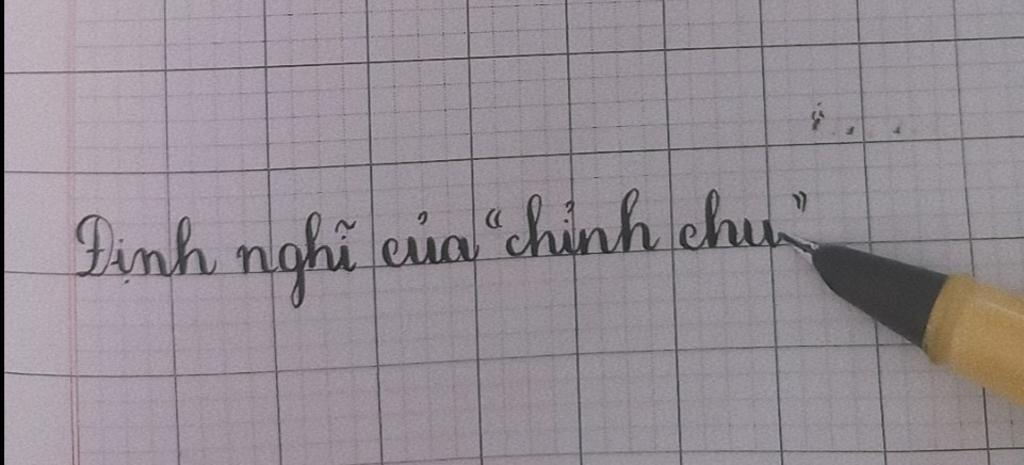 Định nghĩ của “chỉnh chu”